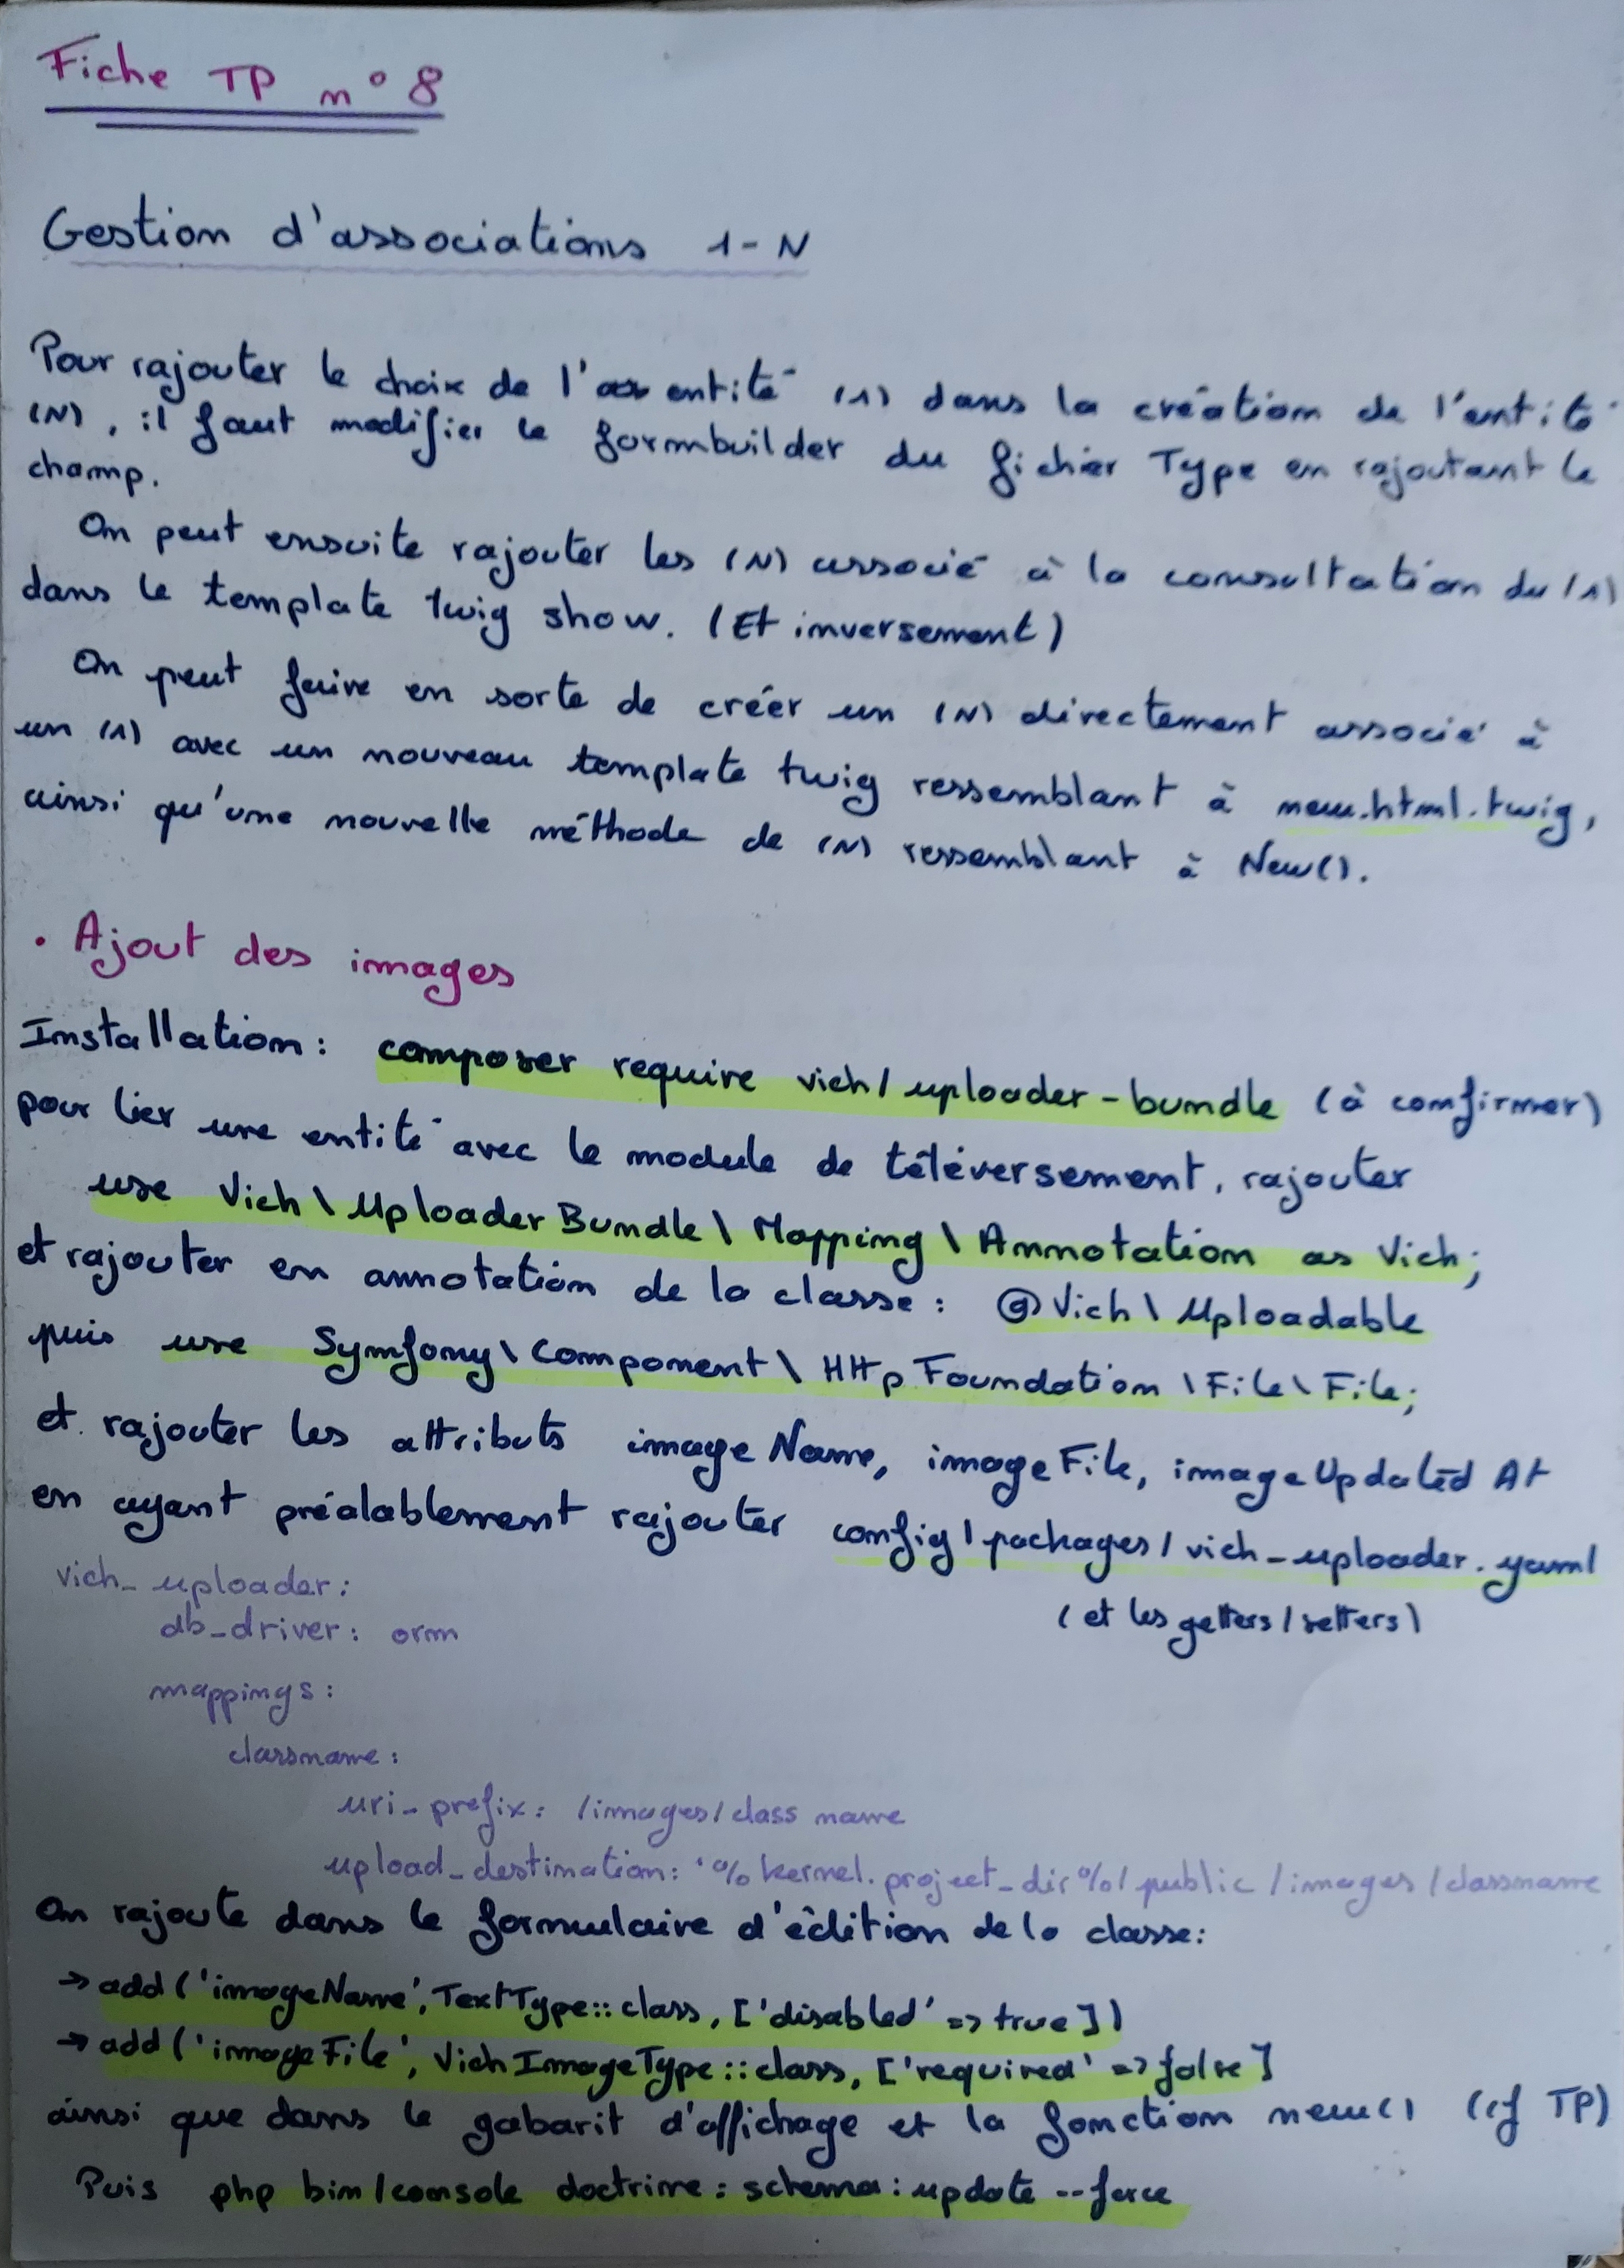 Fiche TP n°8
Gestion d'associations 1-N
Pour rajouter le choix de l'entité (1) dans la création de l'entité
(N), il faut modifier le formbuilder du fichier Type en rajoutant le
champ.
On peut ensuite rajouter les (N) associé à la consultation du (1)
dans le template twig show. (Et inversement)
On peut faire en sorte de créer un (N) directement associé à
un (1) avec un nouveau template twig ressemblant à new.html.twig,
ainsi qu'une nouvelle méthode de (N) ressemblant à New().
• Ajout des images
Installation : composer require vich/uploader-bundle (à confirmer)
pour lier une entité avec le module de téléversement, rajouter
use Vich\UploaderBundle\Mapping\Annotation as Vich;
et rajouter en annotation de la classe : @Vich\Uploadable
puis use Symfony\Component\HttpFoundation\File\File;
et rajouter les attributs imageName, imageFile, imageUpdatedAt
en ayant préalablement rajouter config/packages/vich_uploader.yaml
(et les getters/setters)
vich_uploader:
db_driver: orm
mappings:
classname:
uri_prefix: /images/classname
upload_destination: '%kernel.project_dir%/public/images/classname
On rajoute dans le formulaire d'édition de la classe:
→ add('imageName', TextType::class, ['disabled' => true])
→ add('imageFile', VichImageType::class, ['required' => false]
ainsi que dans le gabarit d'affichage et la fonction new() (cf TP)
Puis php bin/console doctrine:schema:update --force